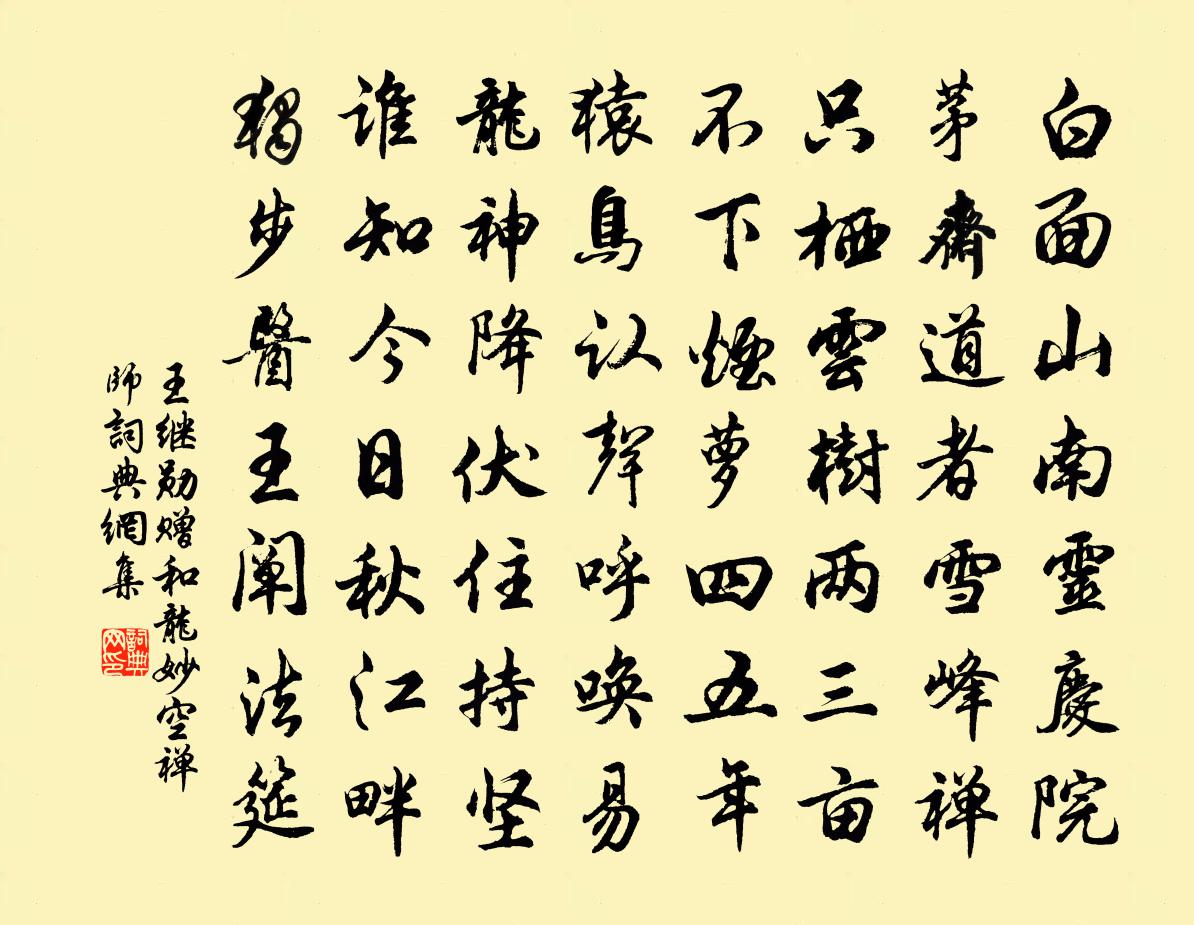 白面山南靈慶院
茅齋道者雪峰禅
只栖雲樹两三亩
不下煙萝四五年
猿鳥认聲呼唤易
龍神降伏住持坚
谁知今日秋江畔
獨步醫王阐法筵
王继勋赠和龍妙空禅
師詞典網集
詞典网印